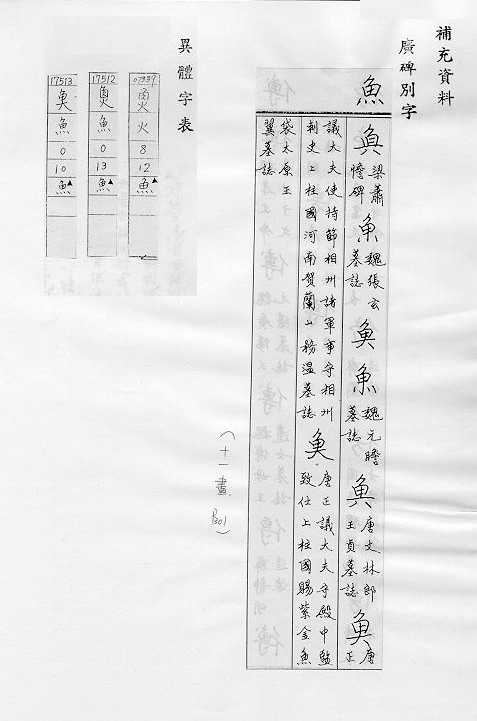 補充資料
廣碑別字
魚
𩵋 梁蕭憺碑 魚 魏張玄墓誌 𩵋 魚 魏元瞻墓誌 𩵋 唐文林郎王貞墓誌 𩵋 唐正
議大夫使持節相州諸軍事守相州刺史上柱國河南賀蘭山務溫墓誌 𩵋 唐正議大夫守殿中監致仕上柱國賜紫金魚
袋太原王翼墓誌
(十一畫.P301)
異體字表
07939 火 8 12 魚▲
17512 魚 0 13 魚▲
17513 魚 0 10 魚▲